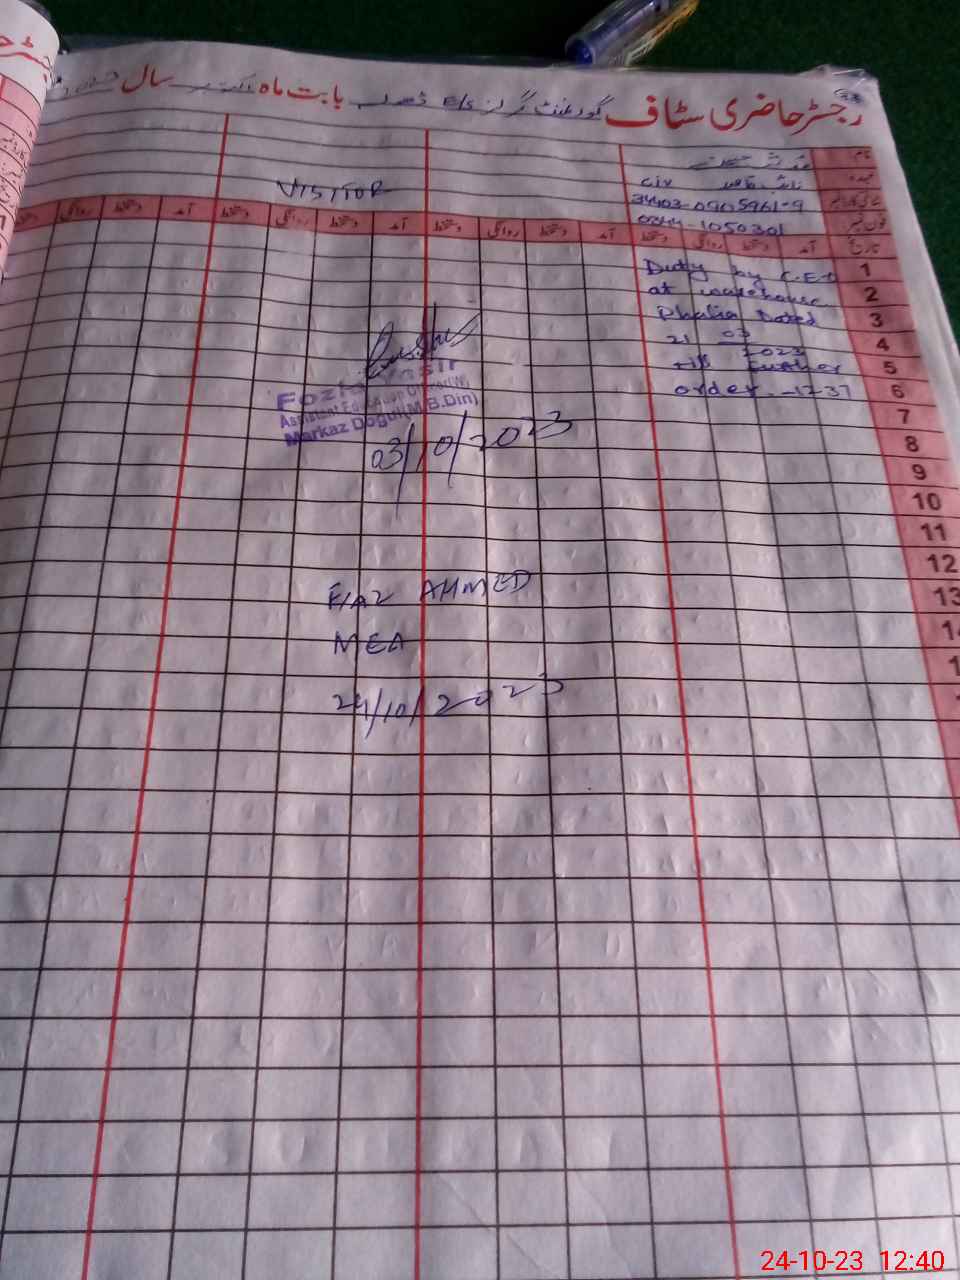 رجسٹر حاضری سٹاف گورنمنٹ گرلز E/S ڈھپ بابت ماہ اکتوبر سال
نام
عہدہ نائب قاصد CIV
34403-0905961-9
فون نمبر 0344-1050301
VISITOR
تاریخ آمد دستخط روانگی دستخط آمد دستخط روانگی دستخط آمد دستخط روانگی دستخط آمد دستخط روانگی دستخط
1 Duty by C.E.O
2 at warehouse
3 Phalia Dated
4 21 03 2023
5 till further
6 order
7
8
9
10
11
12
13
Fozia Yasir
Assistant Education Officer(W)
Markaz Dogul(M.B.Din)
03/10/2023
FIAZ AHMED
MEA
24/10/2023
24-10-23 12:40